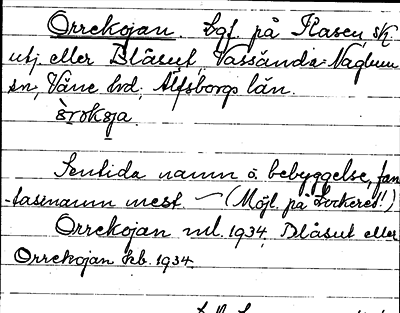 Orrekojan. Lgf. på Flasen sk
utj. eller Blåsut, Vassända-Naglum
sn, Väne hd, Älfsborgs län.
òroksja
Sentida namn å bebyggelse, fan
-tasinamn mest. — (Möjl. på Lockeres!)
Orrekojan ml. 1934, Blåsut eller
Orrekojan kb. 1934.